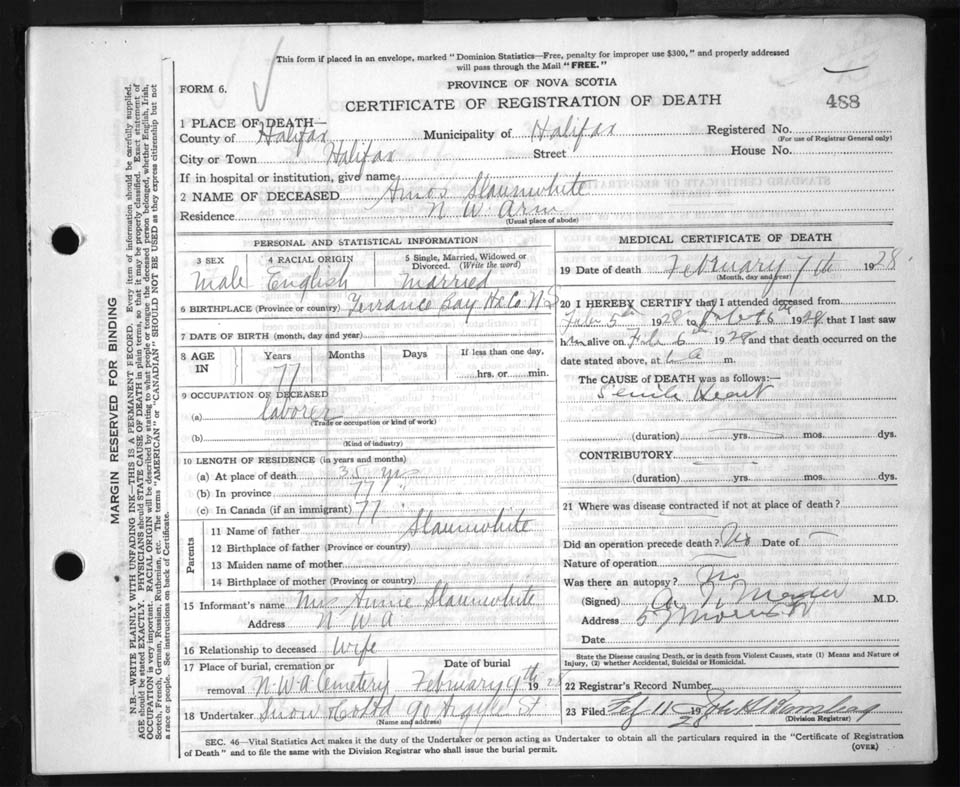 This form if placed in an envelope, marked "Dominion Statistics—Free, penalty for improper use $300," and properly addressed
will pass through the Mail "FREE."
FORM 6.
PROVINCE OF NOVA SCOTIA
CERTIFICATE OF REGISTRATION OF DEATH
488
1 PLACE OF DEATH—
County of Halifax Municipality of Halifax Registered No.
(For use of Registrar General only)
City or Town Halifax Street House No.
If in hospital or institution, give name
2 NAME OF DECEASED Amos Slaunwhite
Residence N W Arm
(Usual place of abode)
PERSONAL AND STATISTICAL INFORMATION
3 SEX 4 RACIAL ORIGIN 5 Single, Married, Widowed or Divorced. (Write the word)
Male English Married
6 BIRTHPLACE (Province or country) Terrance Bay Hx Co N S
7 DATE OF BIRTH (month, day and year)
8 AGE IN Years Months Days If less than one day,
77 hrs. or min.
9 OCCUPATION OF DECEASED
(a) laborer
(Trade or occupation or kind of work)
(b)
(Kind of industry)
10 LENGTH OF RESIDENCE (in years and months)
(a) At place of death 35 yrs
(b) In province 77
(c) In Canada (if an immigrant) 77
Parents
11 Name of father Slaunwhite
12 Birthplace of father (Province or country)
13 Maiden name of mother
14 Birthplace of mother (Province or country)
15 Informant's name Mrs Annie Slaunwhite
Address N W A
16 Relationship to deceased Wife
17 Place of burial, cremation or removal Date of burial
N.W.A Cemetery February 9th 1928
18 Undertaker Snow & Co Ltd 90 Argyle St
(Name and address)
MEDICAL CERTIFICATE OF DEATH
19 Date of death February 7th 1928
(Month, day and year)
20 I HEREBY CERTIFY that I attended deceased from
Feb 5th 1928 to Feb 6th 1928 that I last saw
him alive on Feb 6th 1928 and that death occurred on the
date stated above, at a m.
The CAUSE of DEATH was as follows:—
Senile Heart
(duration) yrs. mos. dys.
CONTRIBUTORY
(duration) yrs. mos. dys.
21 Where was disease contracted if not at place of death?
Did an operation precede death? No Date of —
Nature of operation
Was there an autopsy? No
(Signed) M.D.
Address
Date
State the Disease causing Death, or in death from Violent Causes, state (1) Means and Nature of
Injury, (2) whether Accidental, Suicidal or Homicidal.
22 Registrar's Record Number
23 Filed Feb 11 192
(Division Registrar)
SEC. 46—Vital Statistics Act makes it the duty of the Undertaker or person acting as Undertaker to obtain all the particulars required in the "Certificate of Registration
of Death" and to file the same with the Division Registrar who shall issue the burial permit. (OVER)
MARGIN RESERVED FOR BINDING
N.B.—WRITE PLAINLY WITH UNFADING INK—THIS IS A PERMANENT RECORD. Every item of information should be carefully supplied.
AGE should be stated EXACTLY. PHYSICIANS should STATE CAUSE OF DEATH in plain terms, so that it may be properly classified. Exact statement of
OCCUPATION is very important. RACIAL ORIGIN will be described by stating to what people or tongue the deceased person belonged, whether English, Irish,
Scotch, French, German, Russian, Ruthenian, etc. The terms "AMERICAN" or "CANADIAN" SHOULD NOT BE USED as they express citizenship but not
a race or people. See instructions on back of Certificate.